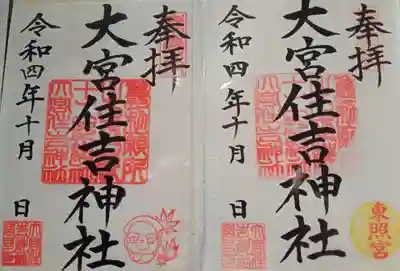 奉拝
大宮住吉神社
令和四年十月 日
奉拝
大宮住吉神社
令和四年十月 日
東照宮